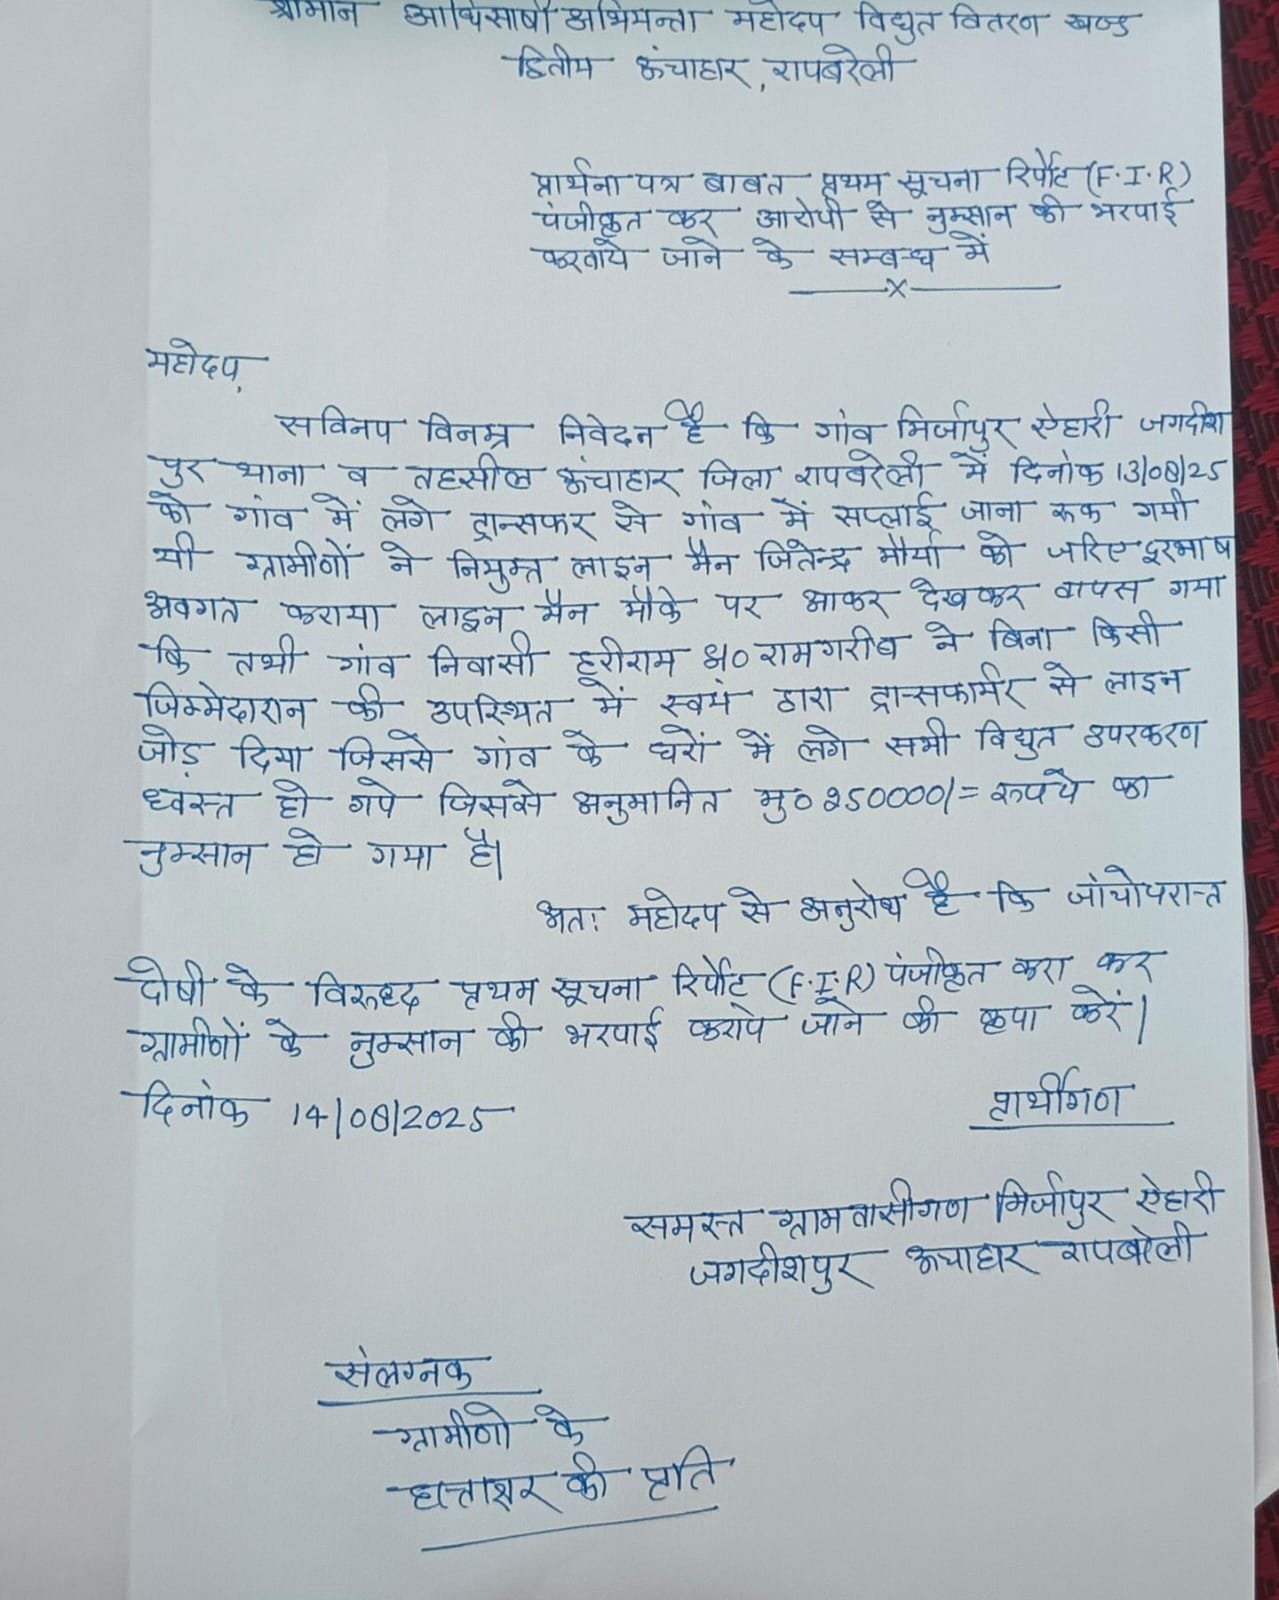 श्रीमान अधिसाषी अभियन्ता महोदय विद्युत वितरण खण्ड
द्वितीय ऊंचाहार, रायबरेली
प्रार्थना पत्र बाबत प्रथम सूचना रिर्पोट (F.I.R)
पंजीकृत कर आरोपी से नुक्सान की भरपाई
करवाये जाने के सम्बन्ध में
——x——
महोदय,
सविनय विनम्र निवेदन है कि गांव मिर्जापुर ऐहारी जगदीश
पुर थाना व तहसील ऊंचाहार जिला रायबरेली में दिनांक 13/08/25
को गांव में लगे ट्रान्सफर से गांव में सप्लाई जाना रूक गयी
थी ग्रामीणों ने नियुक्त लाइन मैन जितेन्द्र मौर्या को जरिए दूरभाष
अवगत कराया लाइन मैन मौके पर आकर देखकर वापस गया
कि तभी गांव निवासी हरीराम S/O रामगरीब ने बिना किसी
जिम्मेदारान की उपस्थित में स्वयं द्वारा ट्रान्सफार्मर से लाइन
जोड़ दिया जिससे गांव के घरों में लगे सभी विद्युत उपरकरण
ध्वस्त हो गये जिससे अनुमानित मु० 250000/= रूपये का
नुक्सान हो गया है।
अतः महोदय से अनुरोध है कि जांचोपरान्त
दोषी के विरूध्द प्रथम सूचना रिर्पोट (F.I.R) पंजीकृत करा कर
ग्रामीणों के नुक्सान की भरपाई कराये जाने की कृपा करें।
दिनांक 14/08/2025
प्रार्थीगण
समस्त ग्रामवासीगण मिर्जापुर ऐहारी
जगदीशपुर ऊचाहार रायबरेली
संलग्नक
ग्रामीणो के
की प्रति